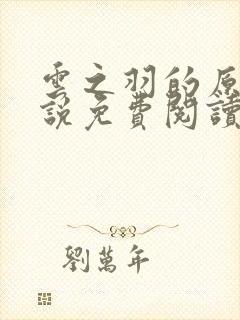 雲之羽的原
說免費閱讀
劉萬年